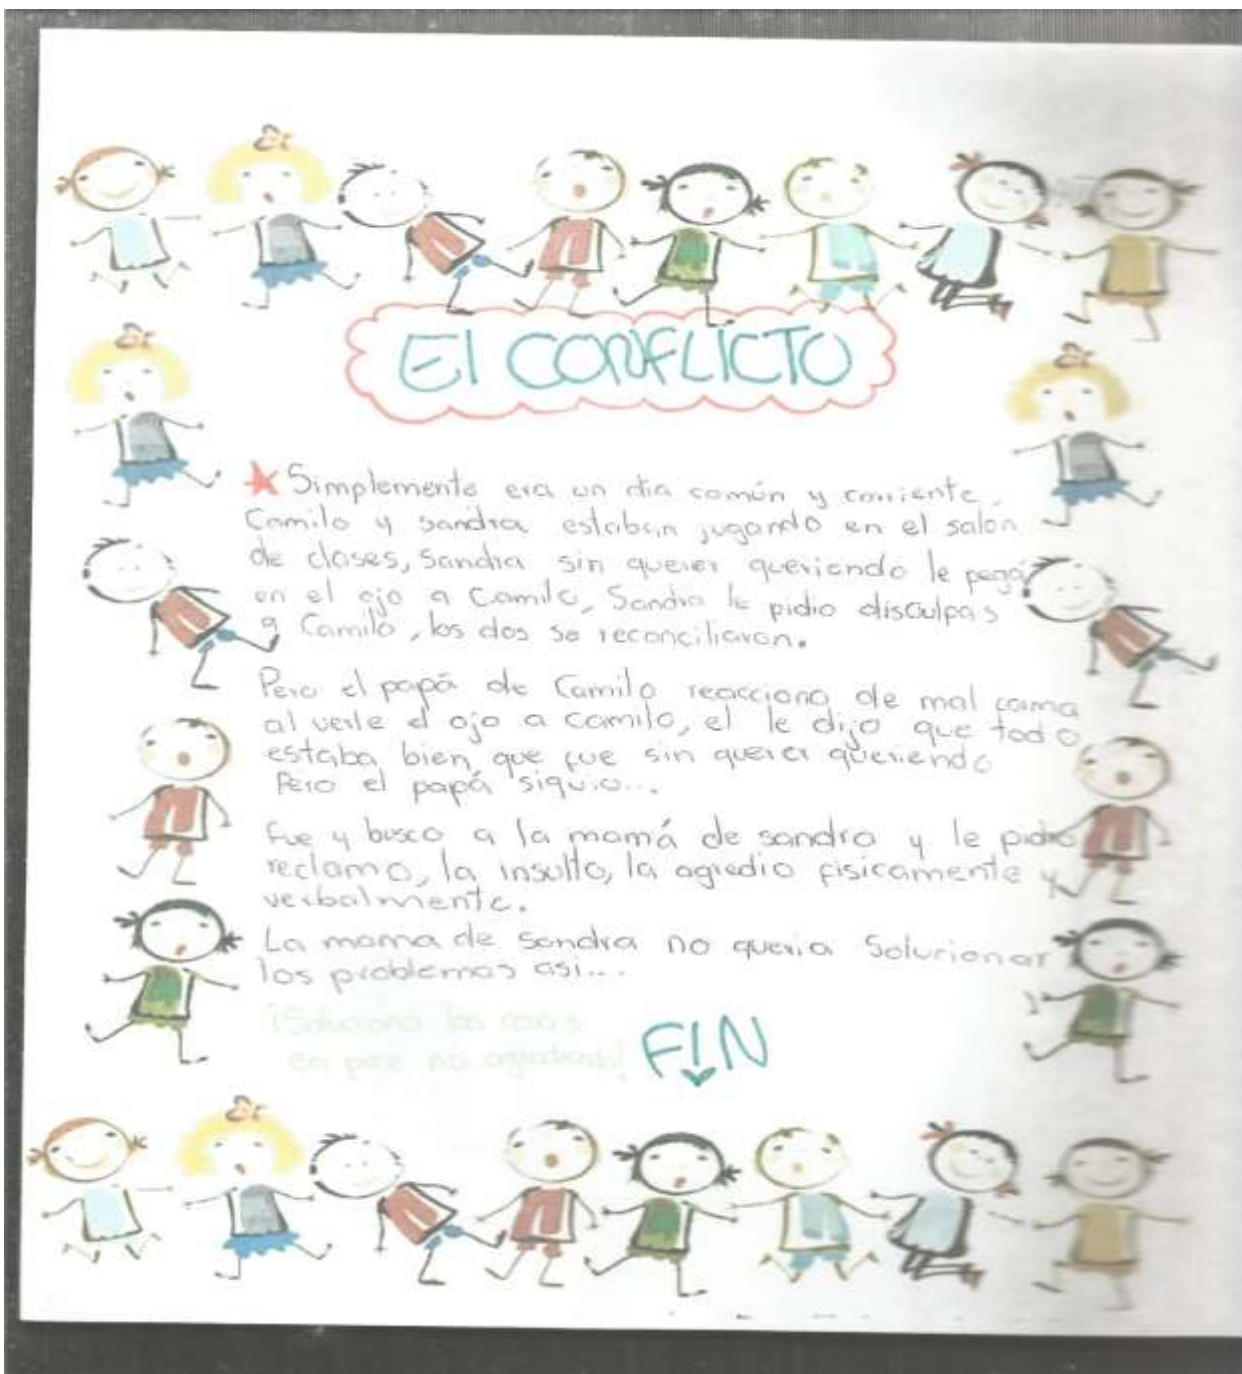 El CONFLICTO
Simplemente era un dia común y corriente.
Camilo y sandra estaban jugando en el salón
de clases, Sandra sin querer queriendo le pegó
en el ojo a Camilo, Sandra le pidio disculpas
a Camilo, los dos se reconciliaron.
Pero el papá de Camilo reacciono de mal forma
al verle el ojo a camilo, el le dijo que todo
estaba bien que fue sin querer queriendo
Pero el papá siguio...
Fue y busco a la mamá de sandra y le pidio
reclamo, la insulto, la agredio fisicamente y
verbalmente.
La mama de Sandra no queria Solucionar
los problemas asi...
¡Soluciona las cosas
en paz no agrediendo!
FIN